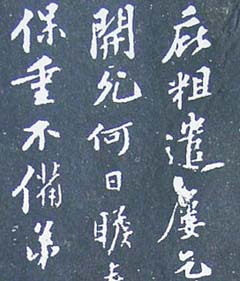 庇粗遣屢乞
開允何日瞻
保重不備弟